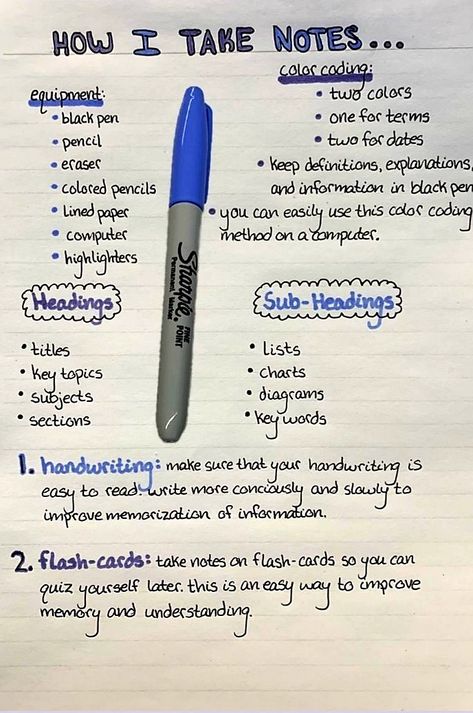 HOW I TAKE NOTES...
equipment:
• black pen
• pencil
• eraser
• colored pencils
• Lined paper
• computer
• highlighters
color coding:
• two colors
• one for terms
• two for dates
• keep definitions, explanations,
and information in black pen
• you can easily use this color coding
method on a computer.
Sharpie.
Permanent Marker
FINE
POINT
Headings
• titles
• key topics
• subjects
• sections
Sub-Headings
• Lists
• charts
• diagrams
• key words
1. handwriting: make sure that your handwriting is
easy to read. write more conciously and slowly to
improve memorization of information.
2. flash-cards: take notes on flash-cards so you can
quiz yourself later. this is an easy way to improve
memory and understanding.